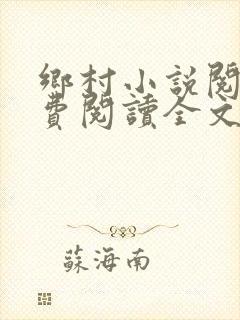 鄉村小說閱
費閱讀全文
蘇海南